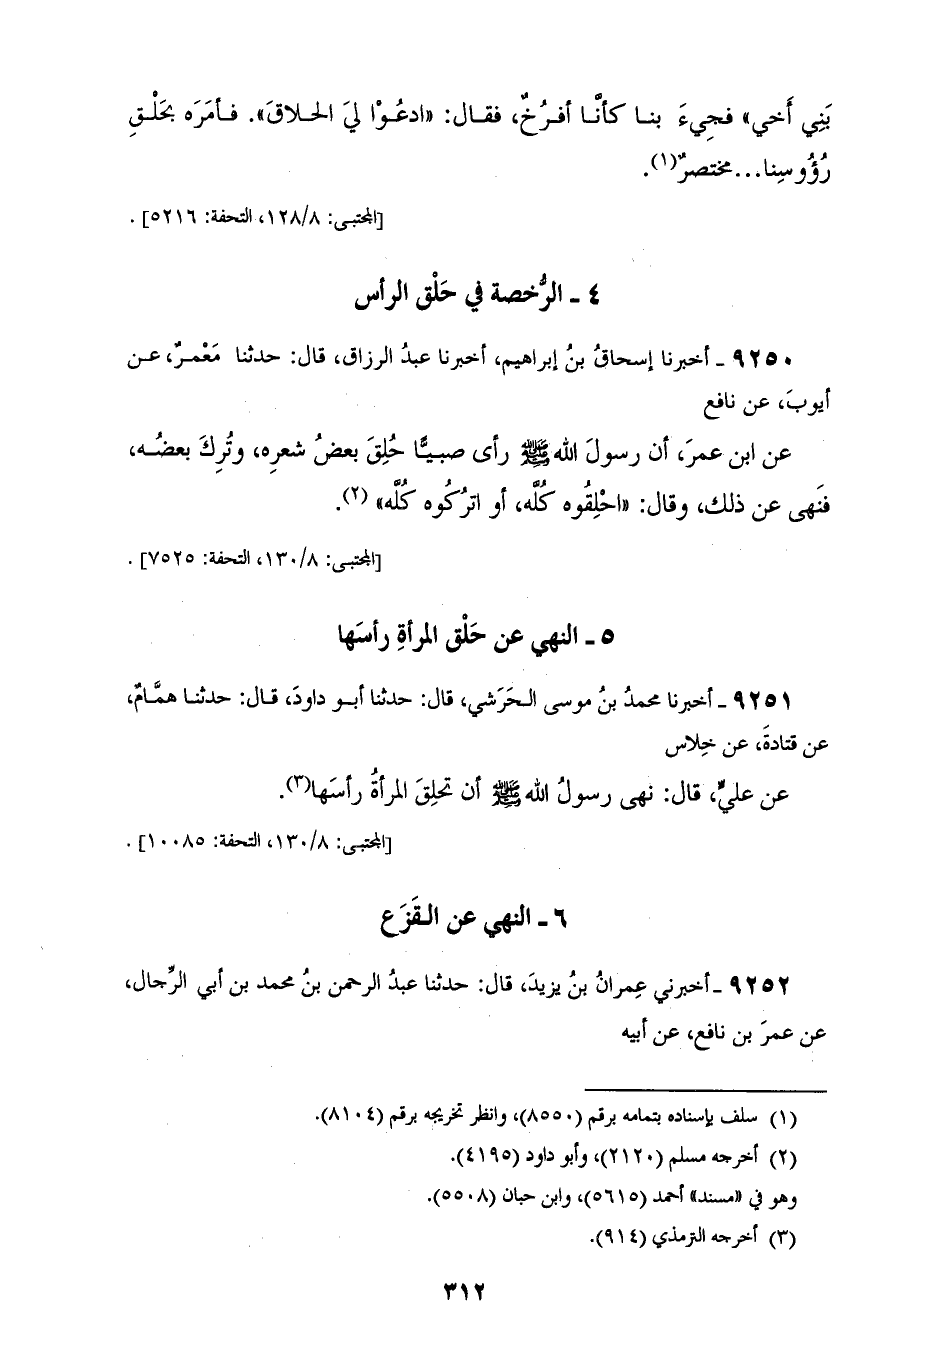 بَنِي أَخي» فجِيءَ بنا كأنَّا أفرُخٌ، فقال: «ادعُوْا ليَ الحلاقَ». فأمَرَه بحَلْقِ
رُؤُوسِنا... مختصرٌ(١).
[المجتبى: ١٢٨/٨، التحفة: ٥٢١٦] .
٤ - الرُّخصة في حَلْق الرأس
٩٢٥٠ - أخبرنا إسحاقُ بنُ إبراهيم، أخبرنا عبدُ الرزاق، قال: حدثنا مَعْمرٌ، عن
أيوبَ، عن نافع
عن ابن عمرَ، أن رسولَ الله ﷺ رأى صبيًّا حُلِقَ بعضُ شعرِه، وتُرِكَ بعضُه،
فنَهى عن ذلك، وقال: «احْلِقُوه كُلَّه، أو اترُكُوه كُلَّه» (٢).
[المجتبى: ١٣٠/٨، التحفة: ٧٥٢٥] .
٥ - النهي عن حَلْق المرأةِ رأسَها
٩٢٥١ - أخبرنا محمدُ بنُ موسى الحَرَشي، قال: حدثنا أبو داودَ، قال: حدثنا همَّامٌ،
عن قتادةَ، عن خِلاس
عن عليٍّ، قال: نهى رسولُ الله ﷺ أن تحلِقَ المرأةُ رأسَها(٣).
[المجتبى: ١٣٠/٨، التحفة: ١٠٠٨٥] .
٦ - النهي عن القَزَع
٩٢٥٢ - أخبرني عِمرانُ بنُ يزيدَ، قال: حدثنا عبدُ الرحمن بنُ محمد بن أبي الرِّجال،
عن عمرَ بن نافع، عن أبيه
(١) سلف بإسناده بتمامه برقم (٨٥٥٠)، وانظر تخريجه برقم (٨١٠٤).
(٢) أخرجه مسلم (٢١٢٠)، وأبو داود (٤١٩٥).
وهو في «مسند» أحمد (٥٦١٥)، وابن حبان (٥٥٠٨).
(٣) أخرجه الترمذي (٩١٤).
٣١٢